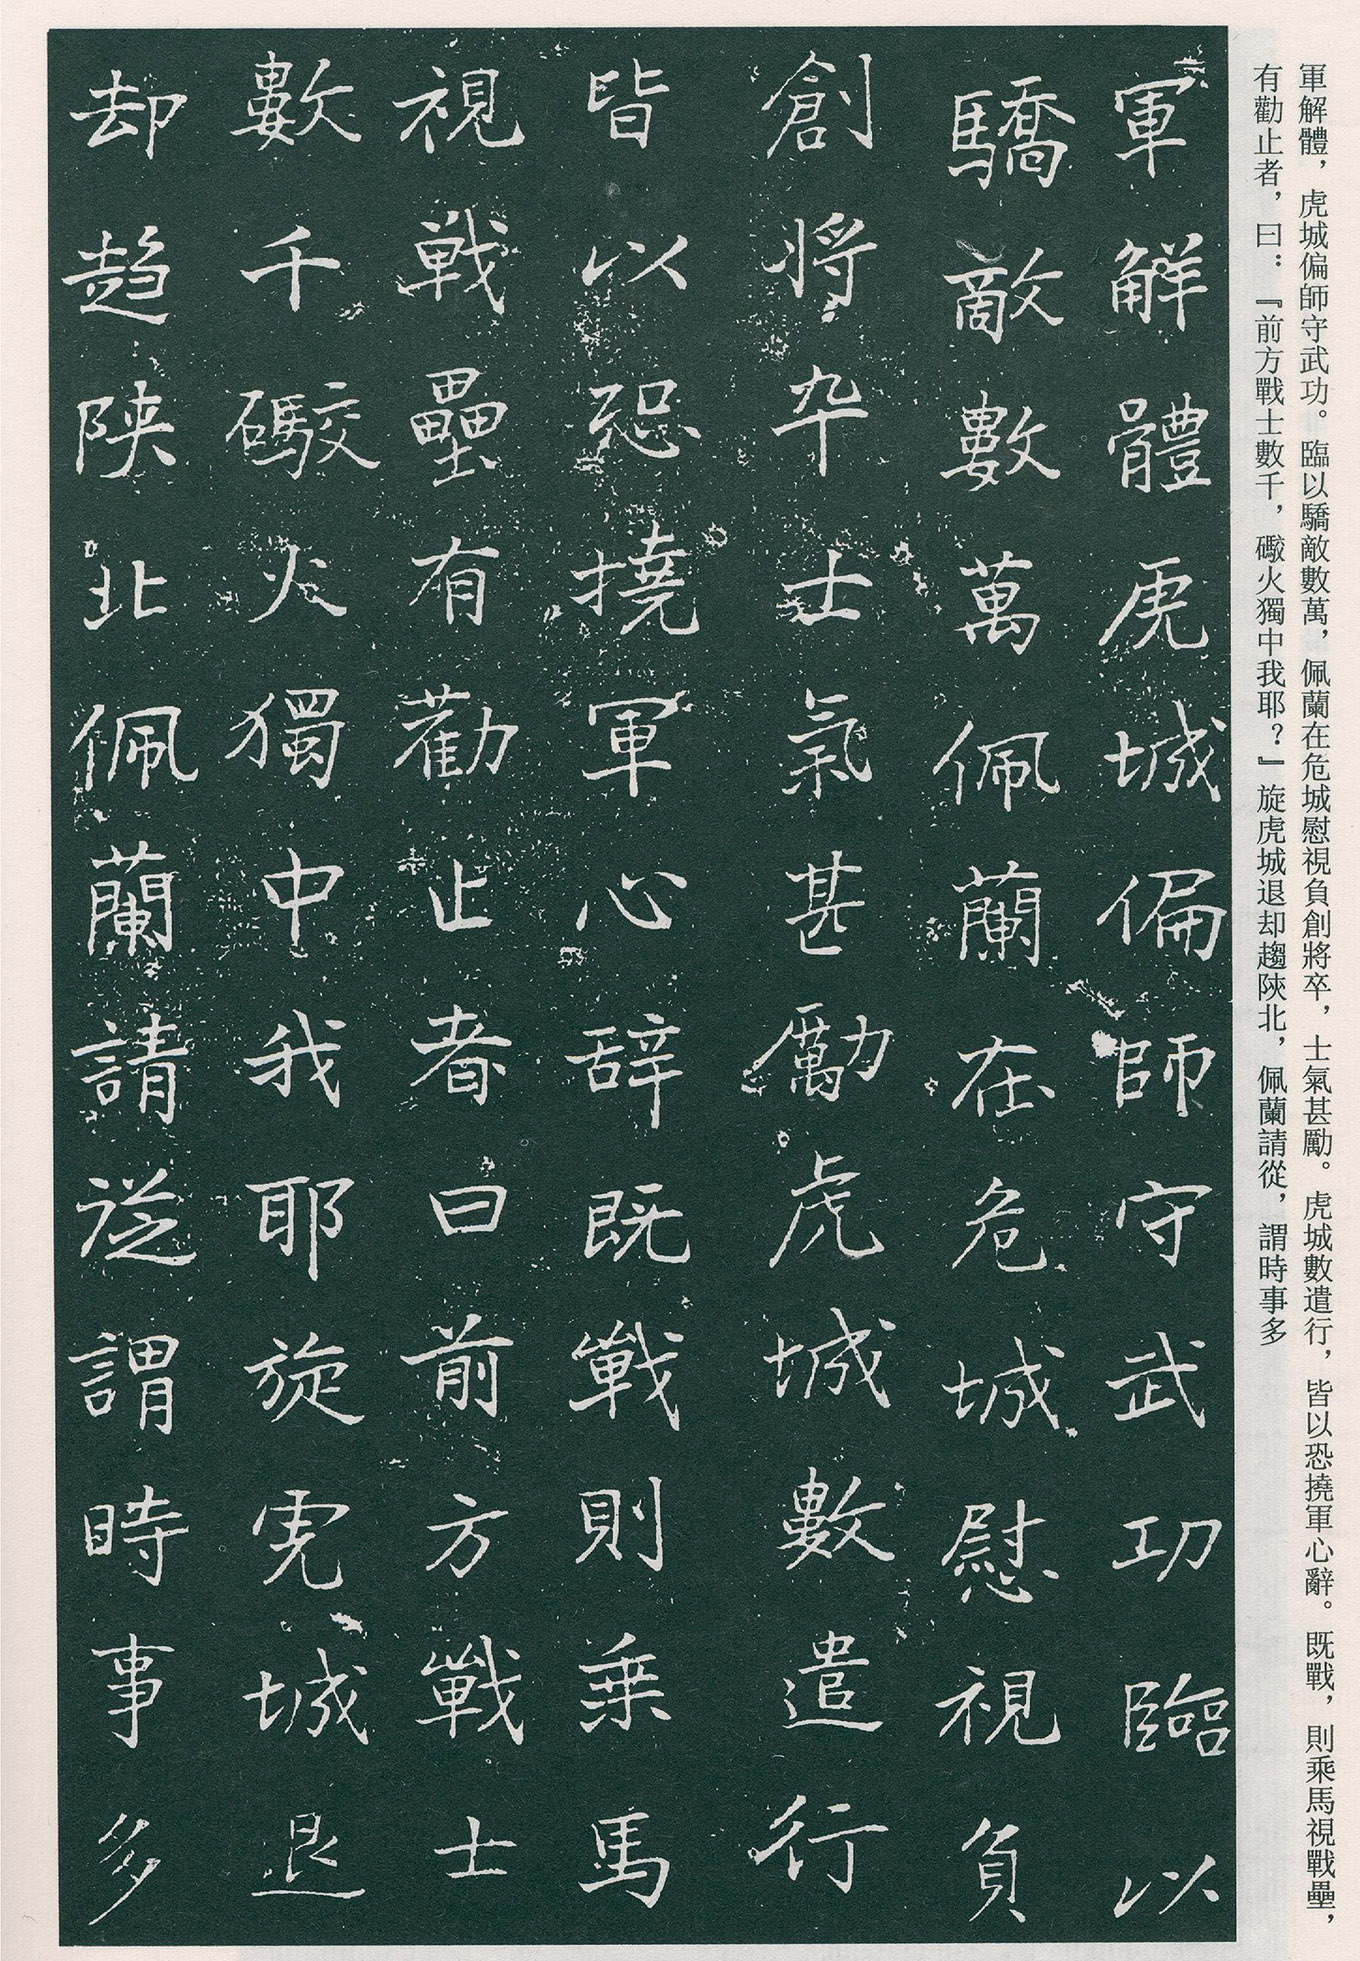 軍解體，虎城偏師守武功。臨以驕敵數萬，佩蘭在危城慰視負創將卒，士氣甚勵。虎城數遣行，皆以恐撓軍心辭。既戰，則乘馬視戰壘，
有勸止者，曰：『前方戰士數千，礮火獨中我耶？』旋虎城退却趨陝北，佩蘭請從，謂時事多
軍解體虎城偏師守武功臨以
驕敵數萬佩蘭在危城慰視負
創將卒士氣甚勵虎城數遣行
皆以恐撓軍心辭既戰則乗馬
視戰壘有勸止者曰前方戰士
數千礮火獨中我耶旋虎城退
却趨陝北佩蘭請從謂時事多